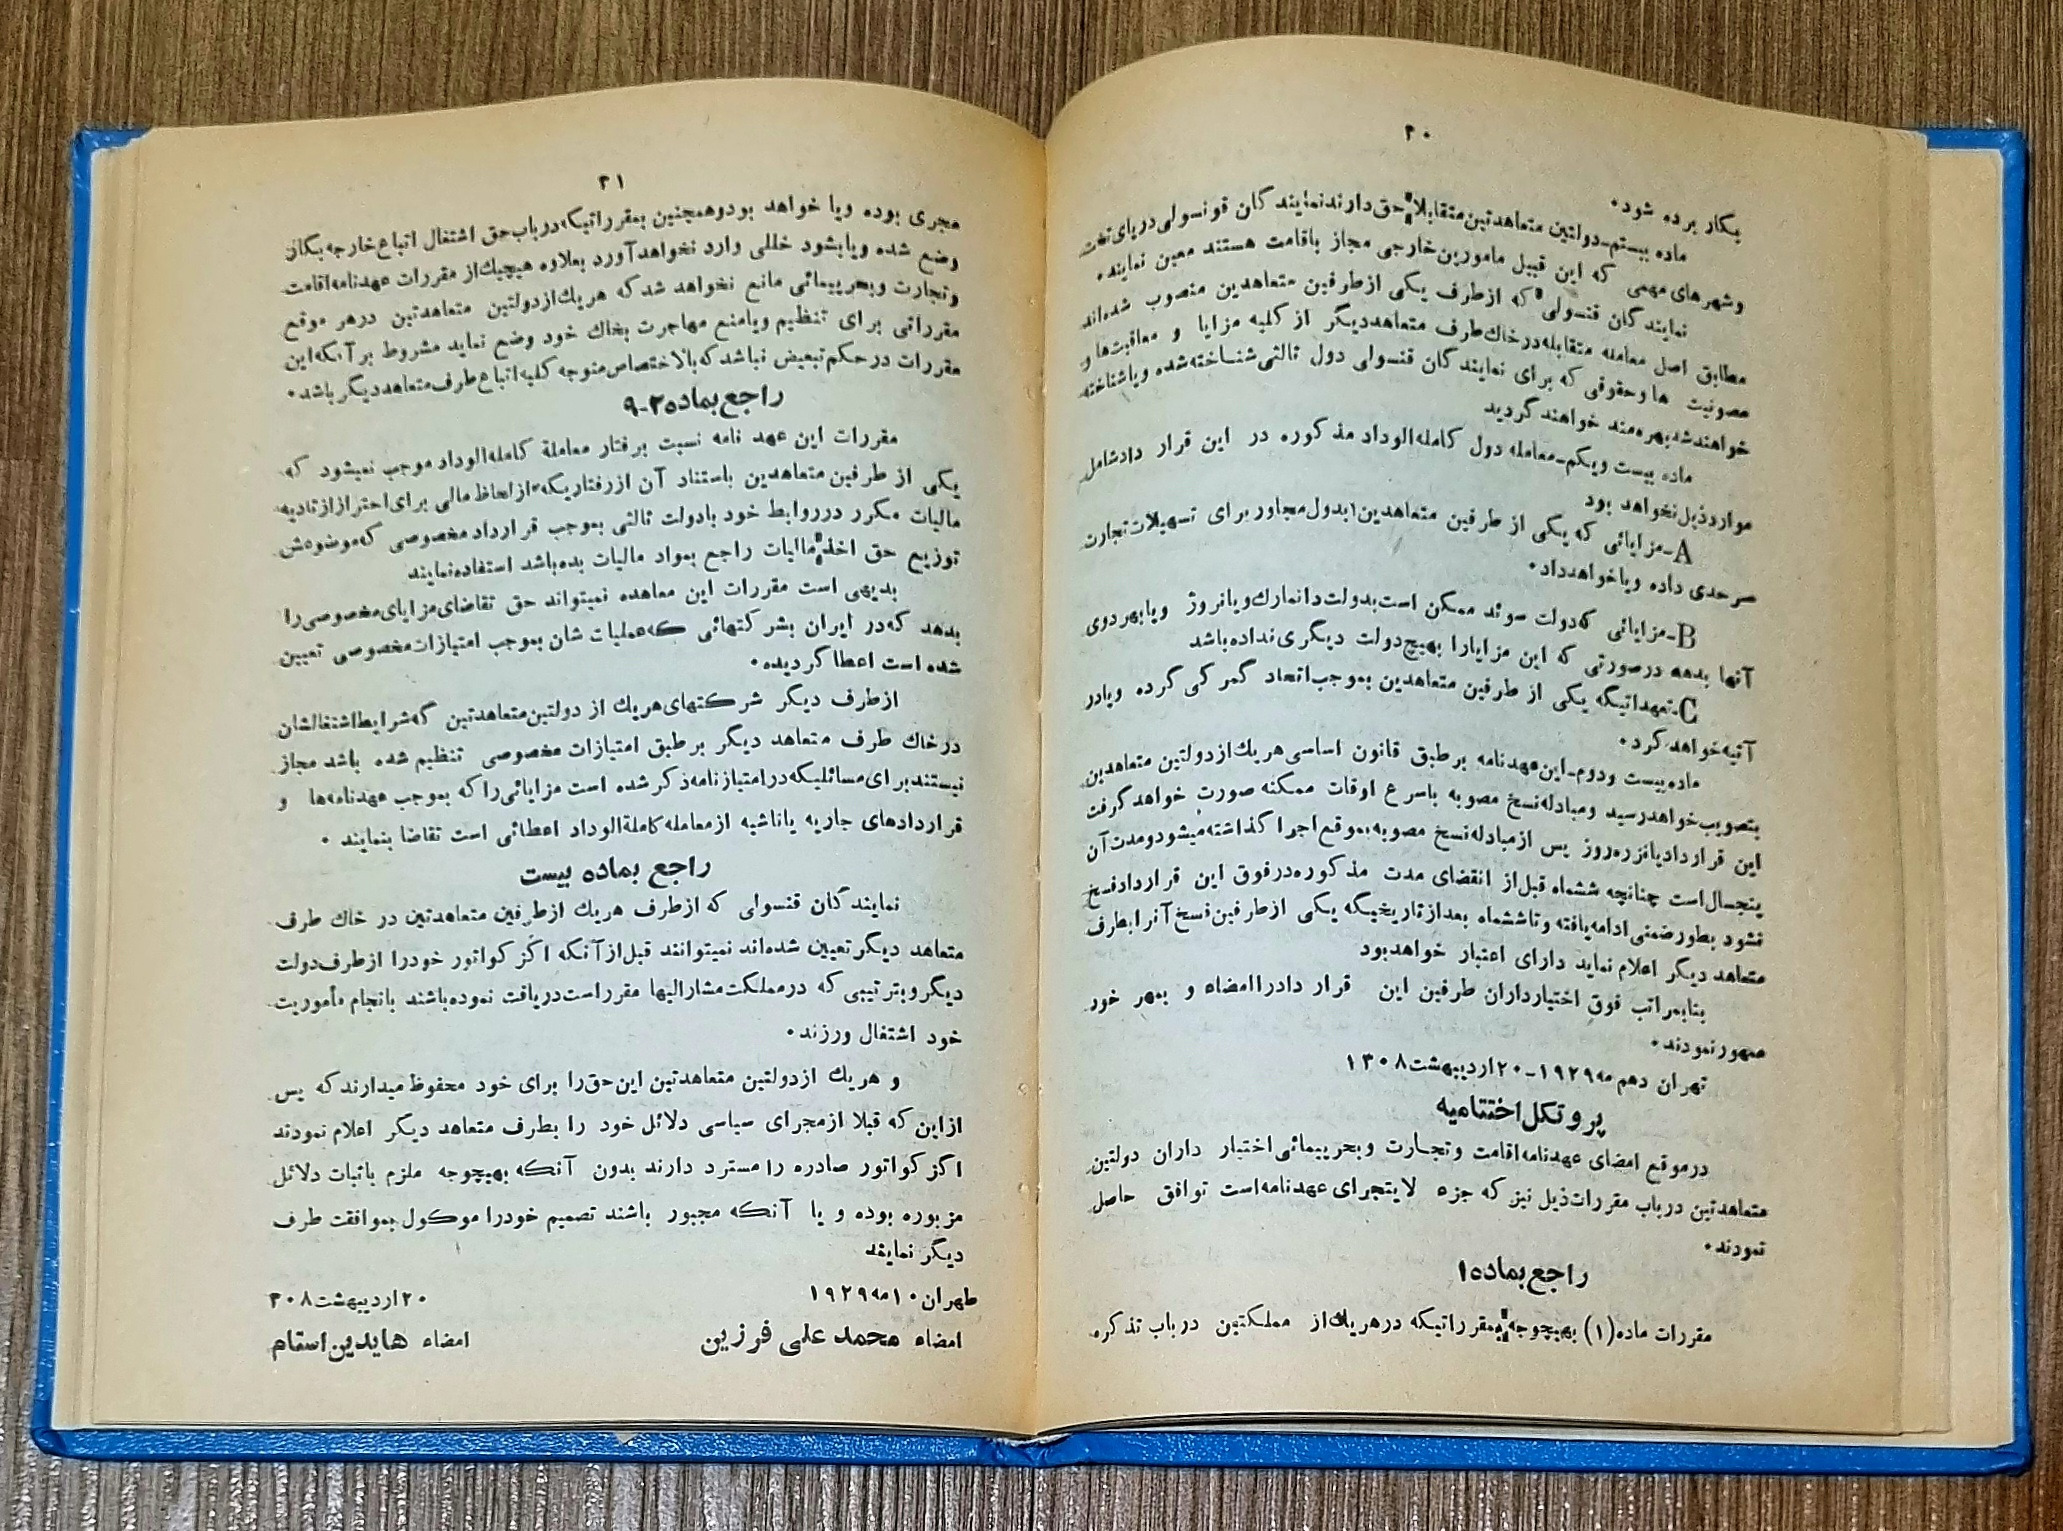 ۲۰
بکار برده شود.
ماده بیستم-دولتین متعاهدتین متقابلا حق دارند نمایندگان قونسولی در پای تخت
وشهرهای مهمی که این قبیل مامورین خارجی مجاز باقامت هستند معین نمایند.
نمایندگان قنسولی که از طرف یکی از طرفین متعاهدین منصوب شده اند
مطابق اصل معامله متقابله در خاك طرف متعاهد دیگر از کلیه مزایا و معافیت ها و
مصونیت ها وحقوقی که برای نمایندگان قنسولی دول ثالثی شناخته شده ویا شناخته
خواهند شد بهره مند خواهند گردید
ماده بیست ویکم-معامله دول کامله الوداد مذکوره در این قرار داد شامل
موارد ذیل نخواهد بود
A-مزایائی که یکی از طرفین متعاهدین بدول مجاور برای تسهیلات تجارت
سرحدی داده ویا خواهد داد.
B-مزایائی که دولت سوئد ممکن است بدولت دانمارك ویا نروژ ویا بهر دوی
آنها بدهد در صورتی که این مزایا را بهیچ دولت دیگری نداده باشد
C-تعهداتیکه یکی از طرفین متعاهدین بموجب اتحاد گمرکی کرده ویا در
آتیه خواهد کرد.
ماده بیست ودوم-این عهدنامه بر طبق قانون اساسی هریك از دولتین متعاهدین
بتصویب خواهد رسید ومبادله نسخ مصوبه باسرع اوقات ممکنه صورت خواهد گرفت
این قرارداد پانزده روز پس از مبادله نسخ مصوبه بموقع اجرا گذاشته میشود و مدت آن
پنجسال است چنانچه ششماه قبل از انقضای مدت مذکوره در فوق این قرارداد فسخ
نشود بطور ضمنی ادامه یافته و تا ششماه بعد از تاریخیکه یکی از طرفین نسخ آنرا بطرف
متعاهد دیگر اعلام نماید دارای اعتبار خواهد بود
بنابمراتب فوق اختیارداران طرفین این قرار داد را امضاء و بمهر خود
ممهور نمودند.
تهران دهم مه ۱۹۲۹-۲۰ اردیبهشت ۱۳۰۸
پروتکل اختتامیه
در موقع امضای عهدنامه اقامت وتجارت وبحرپیمائی اختیار داران دولتین
متعاهدتین در باب مقررات ذیل نیز که جزء لایتجزای عهدنامه است توافق حاصل
نمودند.
راجع بماده ۱
مقررات ماده (۱) بهیچوجه بمقرراتیکه در هریك از مملکتین در باب تذکره
۲۱
مجری بوده ویا خواهد بود و همچنین بمقرراتیکه در باب حق اشتغال اتباع خارجه بکار
وضع شده ویا بشود خللی وارد نخواهد آورد بعلاوه هیچیك از مقررات عهدنامه اقامت
وتجارت وبحرپیمائی مانع نخواهد شد که هریك از دولتین متعاهدتین در هر موقع
مقرراتی برای تنظیم ویا منع مهاجرت بخاك خود وضع نماید مشروط بر آنکه این
مقررات در حکم تبعیض نباشد که بالاختصاص متوجه کلیه اتباع طرف متعاهد دیگر باشد.
راجع بماده ۲-۹
مقررات این عهد نامه نسبت برفتار معاملة کامله الوداد موجب نمیشود که
یکی از طرفین متعاهدین باستناد آن از رفتاریکه از لحاظ مالی برای احتراز از تادیه
مالیات مکرر در روابط خود با دولت ثالثی بموجب قرارداد مخصوصی که موضوعش
توزیع حق اخذ مالیات راجع بمواد مالیات بده باشد استفاده نمایند
بدیهی است مقررات این معاهده نمیتواند حق تقاضای مزایای مخصوصی را
بدهد که در ایران بشرکتهائی که عملیات شان بموجب امتیازات مخصوصی تعیین
شده است اعطا گردیده.
از طرف دیگر شرکتهای هریك از دولتین متعاهدتین که شرایط اشتغالشان
در خاك طرف متعاهد دیگر بر طبق امتیازات مخصوصی تنظیم شده باشد مجاز
نیستند برای مسائلیکه در امتیازنامه ذکر شده است مزایائی را که بموجب عهدنامه ها و
قراردادهای جاریه یا ناشیه از معامله کاملة الوداد اعطائی است تقاضا بنمایند .
راجع بماده بیست
نمایندگان قنسولی که از طرف هریك از طرفین متعاهدتین در خاك طرف
متعاهد دیگر تعیین شده اند نمیتوانند قبل از آنکه اگزکواتور خود را از طرف دولت
دیگر وبترتیبی که در مملکت مشارالیها مقرر است دریافت نموده باشند بانجام مأموریت
خود اشتغال ورزند.
و هریك از دولتین متعاهدتین این حق را برای خود محفوظ میدارند که پس
از این که قبلا از مجرای سیاسی دلائل خود را بطرف متعاهد دیگر اعلام نمودند
اگزکواتور صادره را مسترد دارند بدون آنکه بهیچوجه ملزم باثبات دلائل
مزبوره بوده و یا آنکه مجبور باشند تصمیم خود را موکول بموافقت طرف
دیگر نمایند
طهران ۱۰ مه ۱۹۲۹ ۲۰ اردیبهشت ۳۰۸
امضاء محمد علی فرزین امضاء هایدین استام